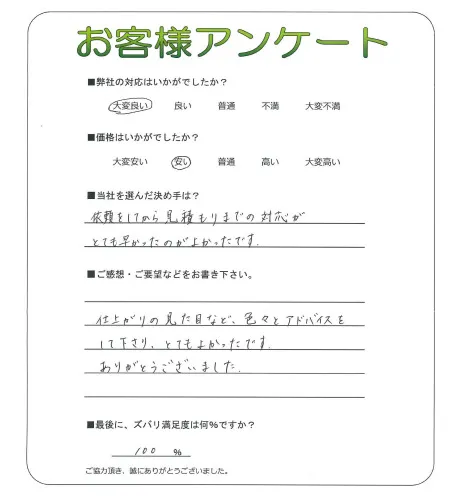 お客様アンケート
■弊社の対応はいかがでしたか？
大変良い 良い 普通 不満 大変不満
■価格はいかがでしたか？
大変安い 安い 普通 高い 大変高い
■当社を選んだ決め手は？
依頼をしてから見積もりまでの対応が
とても早かったのがよかったです.
■ご感想・ご要望などをお書き下さい。
仕上がりの見た目など、色々とアドバイスを
して下さり、とてもよかったです.
ありがとうございました.
■最後に、ズバリ満足度は何%ですか？
100 %
ご協力頂き、誠にありがとうございました。